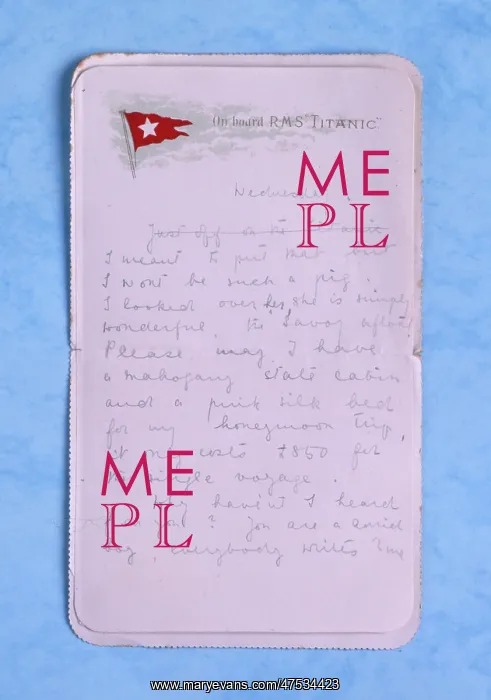 On board RMS "TITANIC"
ME
PL
Wednesday
Just off on the Titanic
I meant to put that but
I wont be such a pig.
I looked over her, she is simply
wonderful, the Savoy afloat
Please may I have
a mahogany state cabin
and a pink silk bed
for my honeymoon trip,
it only costs £850 for
the single voyage.
Why haven't I heard
from you? You are a
boy, everybody writes me
ME
PL
www.maryevans.com/47534423